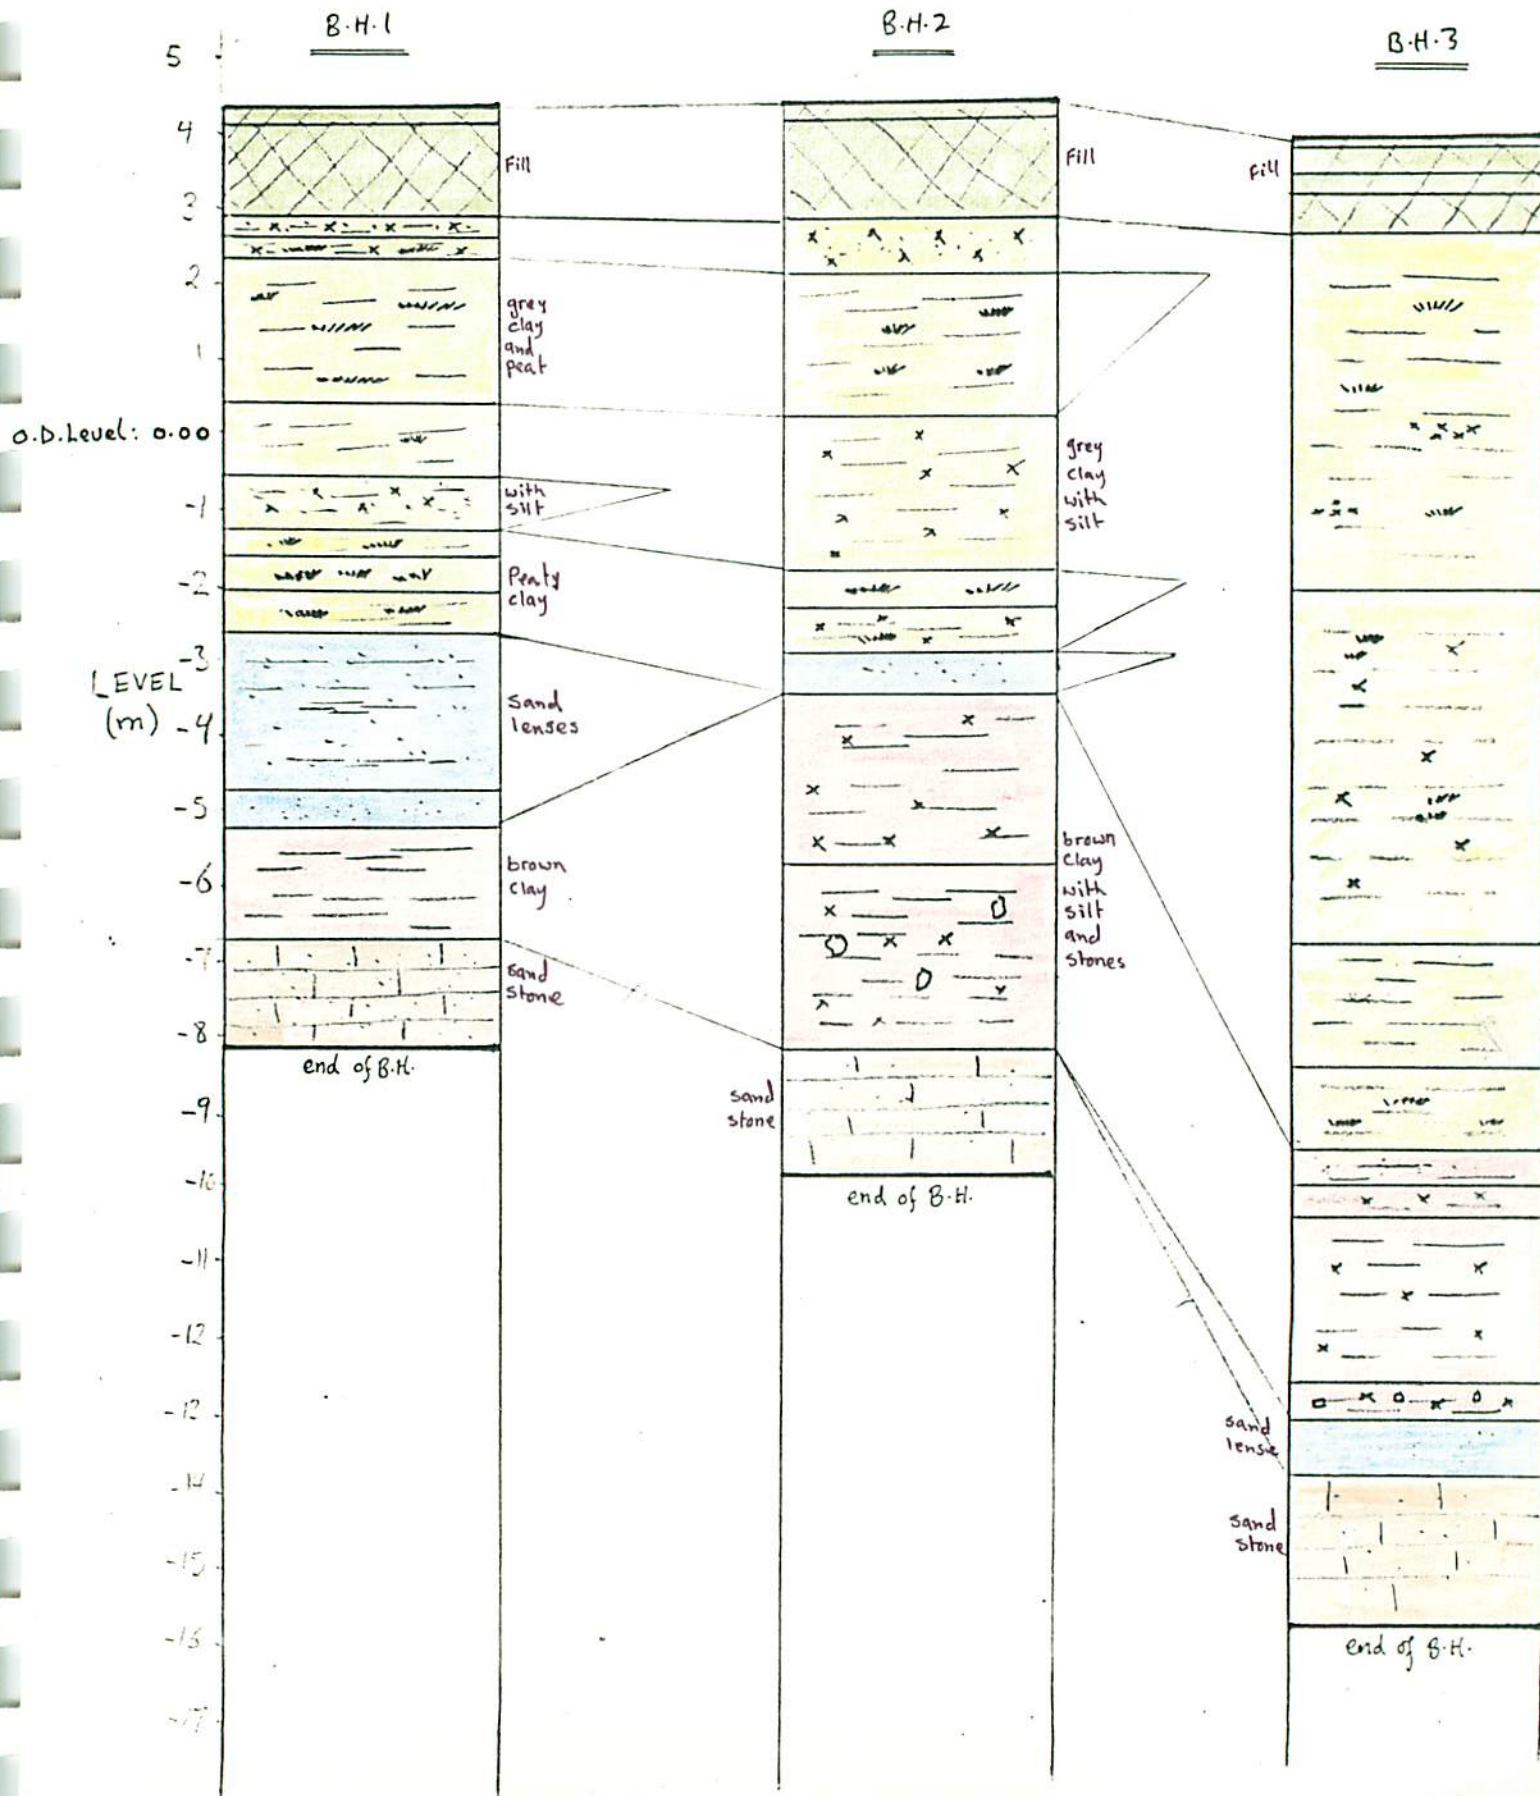 B.H.1
B.H.2
B.H.3
5
4
3
2
1
O.D.Level: 0.00
-1
-2
-3
LEVEL
(m)
-4
-5
-6
-7
-8
-9
-10
-11
-12
-12
-14
-15
-16
-17
Fill
grey
clay
and
peat
with
silt
Peaty
clay
Sand
lenses
brown
clay
sand
stone
end of B.H.
Fill
grey
clay
with
silt
brown
clay
with
silt
and
stones
sand
stone
end of B.H.
Fill
sand
lense
sand
stone
end of B.H.